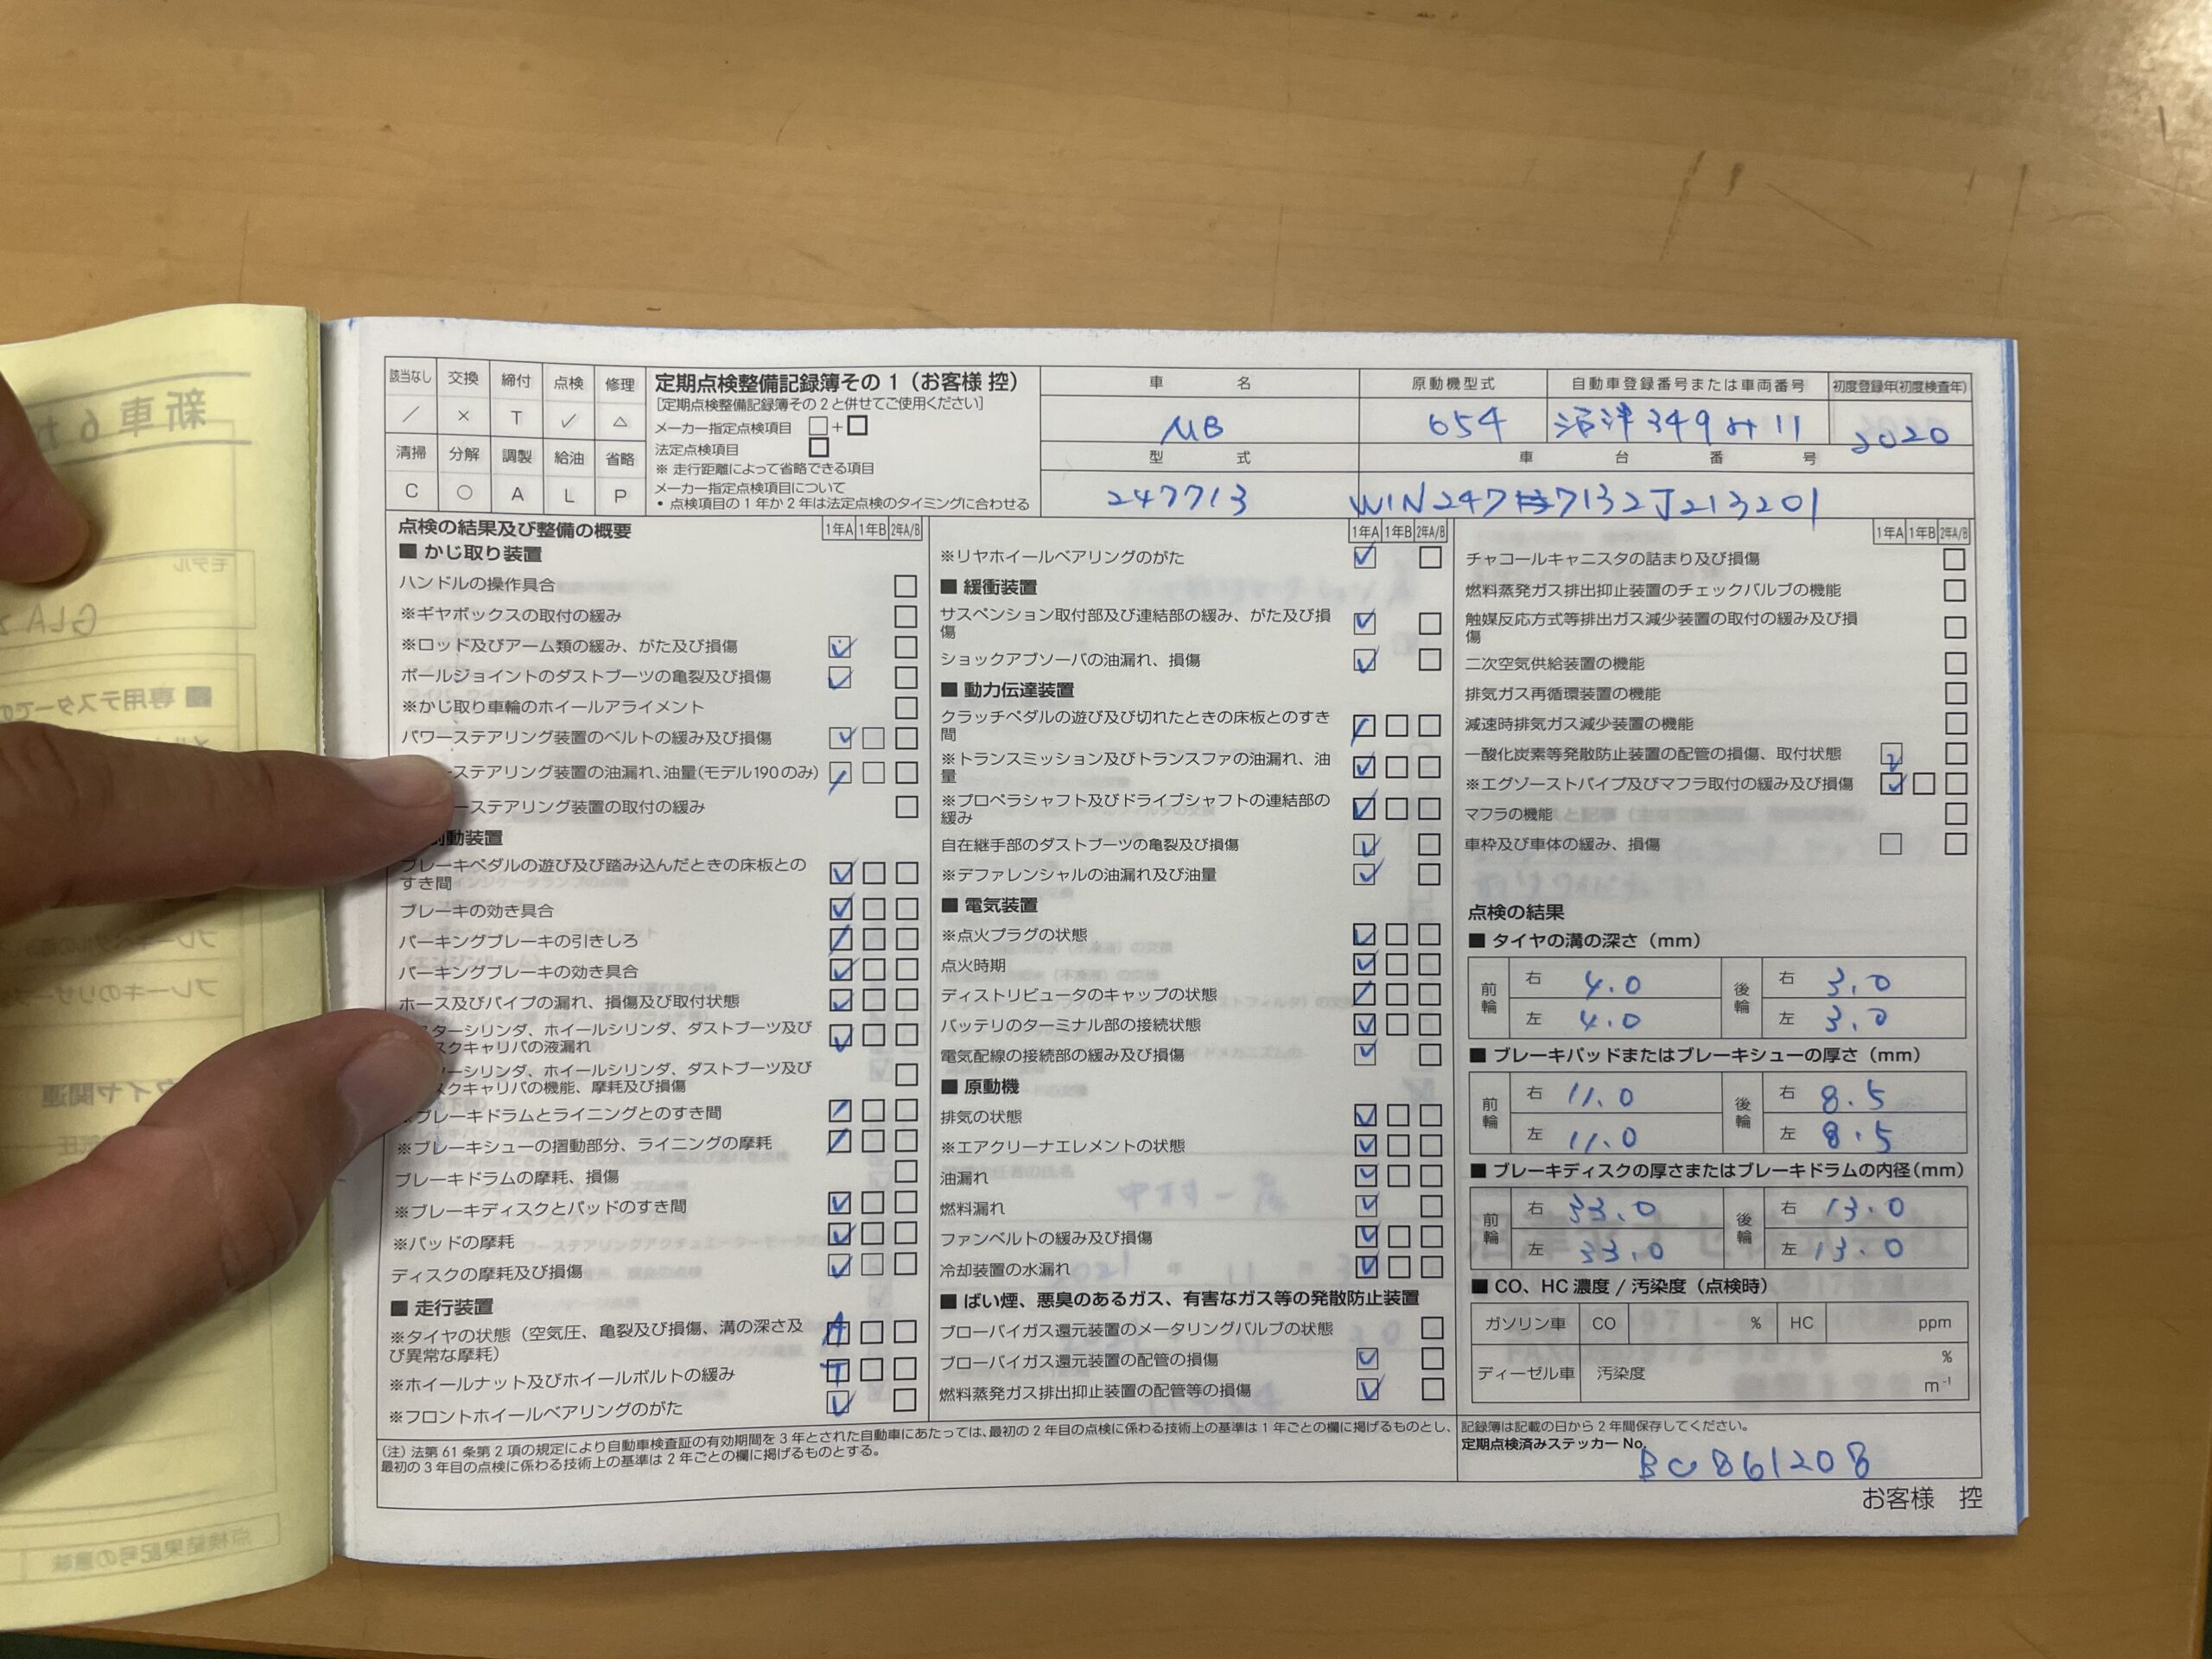 該当なし 交換 締付 点検 修理
／ × T ✓ △
清掃 分解 調製 給油 省略
C ○ A L P
定期点検整備記録簿その1（お客様 控）
［定期点検整備記録簿その2と併せてご使用ください］
メーカー指定点検項目 □+□
法定点検項目 □
※ 走行距離によって省略できる項目
メーカー指定点検項目について
• 点検項目の1年か2年は法定点検のタイミングに合わせる
車 名
MB
原動機型式
654
自動車登録番号または車両番号
沼津 349 み 11
初度登録年(初度検査年)
2020
型 式
247713
車 台 番 号
W1N2477132J213201
点検の結果及び整備の概要
1年A 1年B 2年A/B
■ かじ取り装置
ハンドルの操作具合
※ギヤボックスの取付の緩み
※ロッド及びアーム類の緩み、がた及び損傷
ボールジョイントのダストブーツの亀裂及び損傷
※かじ取り車輪のホイールアライメント
パワーステアリング装置のベルトの緩み及び損傷
ーステアリング装置の油漏れ、油量(モデル190のみ)
ーステアリング装置の取付の緩み
制動装置
ブレーキペダルの遊び及び踏み込んだときの床板との
すき間
ブレーキの効き具合
パーキングブレーキの引きしろ
パーキングブレーキの効き具合
ホース及びパイプの漏れ、損傷及び取付状態
スターシリンダ、ホイールシリンダ、ダストブーツ及び
スクキャリパの液漏れ
ーシリンダ、ホイールシリンダ、ダストブーツ及び
スクキャリパの機能、摩耗及び損傷
※ブレーキドラムとライニングとのすき間
※ブレーキシューの摺動部分、ライニングの摩耗
ブレーキドラムの摩耗、損傷
※ブレーキディスクとパッドのすき間
※パッドの摩耗
ディスクの摩耗及び損傷
■ 走行装置
※タイヤの状態（空気圧、亀裂及び損傷、溝の深さ及
び異常な摩耗） A
※ホイールナット及びホイールボルトの緩み T
※フロントホイールベアリングのがた
1年A 1年B 2年A/B
※リヤホイールベアリングのがた
■ 緩衝装置
サスペンション取付部及び連結部の緩み、がた及び損
傷
ショックアブソーバの油漏れ、損傷
■ 動力伝達装置
クラッチペダルの遊び及び切れたときの床板とのすき
間
※トランスミッション及びトランスファの油漏れ、油
量
※プロペラシャフト及びドライブシャフトの連結部の
緩み
自在継手部のダストブーツの亀裂及び損傷
※デファレンシャルの油漏れ及び油量
■ 電気装置
※点火プラグの状態
点火時期
ディストリビュータのキャップの状態
バッテリのターミナル部の接続状態
電気配線の接続部の緩み及び損傷
■ 原動機
排気の状態
※エアクリーナエレメントの状態
油漏れ
燃料漏れ
ファンベルトの緩み及び損傷
冷却装置の水漏れ
■ ばい煙、悪臭のあるガス、有害なガス等の発散防止装置
ブローバイガス還元装置のメータリングバルブの状態
ブローバイガス還元装置の配管の損傷
燃料蒸発ガス排出抑止装置の配管等の損傷
1年A 1年B 2年A/B
チャコールキャニスタの詰まり及び損傷
燃料蒸発ガス排出抑止装置のチェックバルブの機能
触媒反応方式等排出ガス減少装置の取付の緩み及び損
傷
二次空気供給装置の機能
排気ガス再循環装置の機能
減速時排気ガス減少装置の機能
一酸化炭素等発散防止装置の配管の損傷、取付状態
※エグゾーストパイプ及びマフラ取付の緩み及び損傷
マフラの機能
車枠及び車体の緩み、損傷
点検の結果
■ タイヤの溝の深さ（mm）
前輪 右 4.0 後輪 右 3.0
左 4.0 左 3.0
■ ブレーキパッドまたはブレーキシューの厚さ（mm）
前輪 右 11.0 後輪 右 8.5
左 11.0 左 8.5
■ ブレーキディスクの厚さまたはブレーキドラムの内径(mm)
前輪 右 33.0 後輪 右 13.0
左 33.0 左 13.0
■ CO、HC 濃度 / 汚染度（点検時）
ガソリン車 CO % HC ppm
ディーゼル車 汚染度 %
m-1
（注）法第61条第2項の規定により自動車検査証の有効期間を3年とされた自動車にあたっては、最初の2年目の点検に係わる技術上の基準は1年ごとの欄に掲げるものとし、
最初の3年目の点検に係わる技術上の基準は2年ごとの欄に掲げるものとする。
記録簿は記載の日から2年間保存してください。
定期点検済みステッカー No.
BC861208
お客様 控